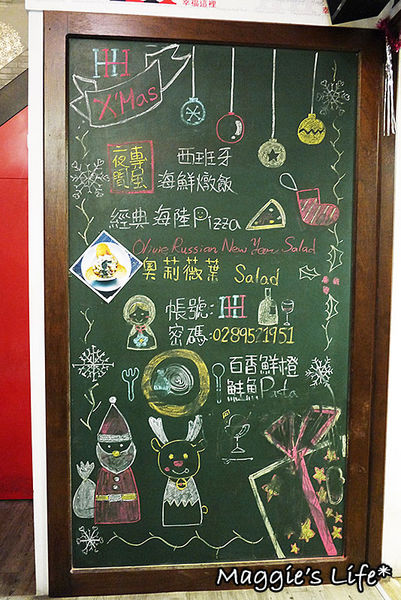 幸福這裡
HH
X'Mas
夜間專屬
西班牙
海鮮燉飯
經典海陸Pizza
Olivie Russian New Year Salad
奧莉薇葉 Salad
帳號:HH
密碼:0289521951
百香鮮橙
鮭魚Pasta
Maggie's Life*